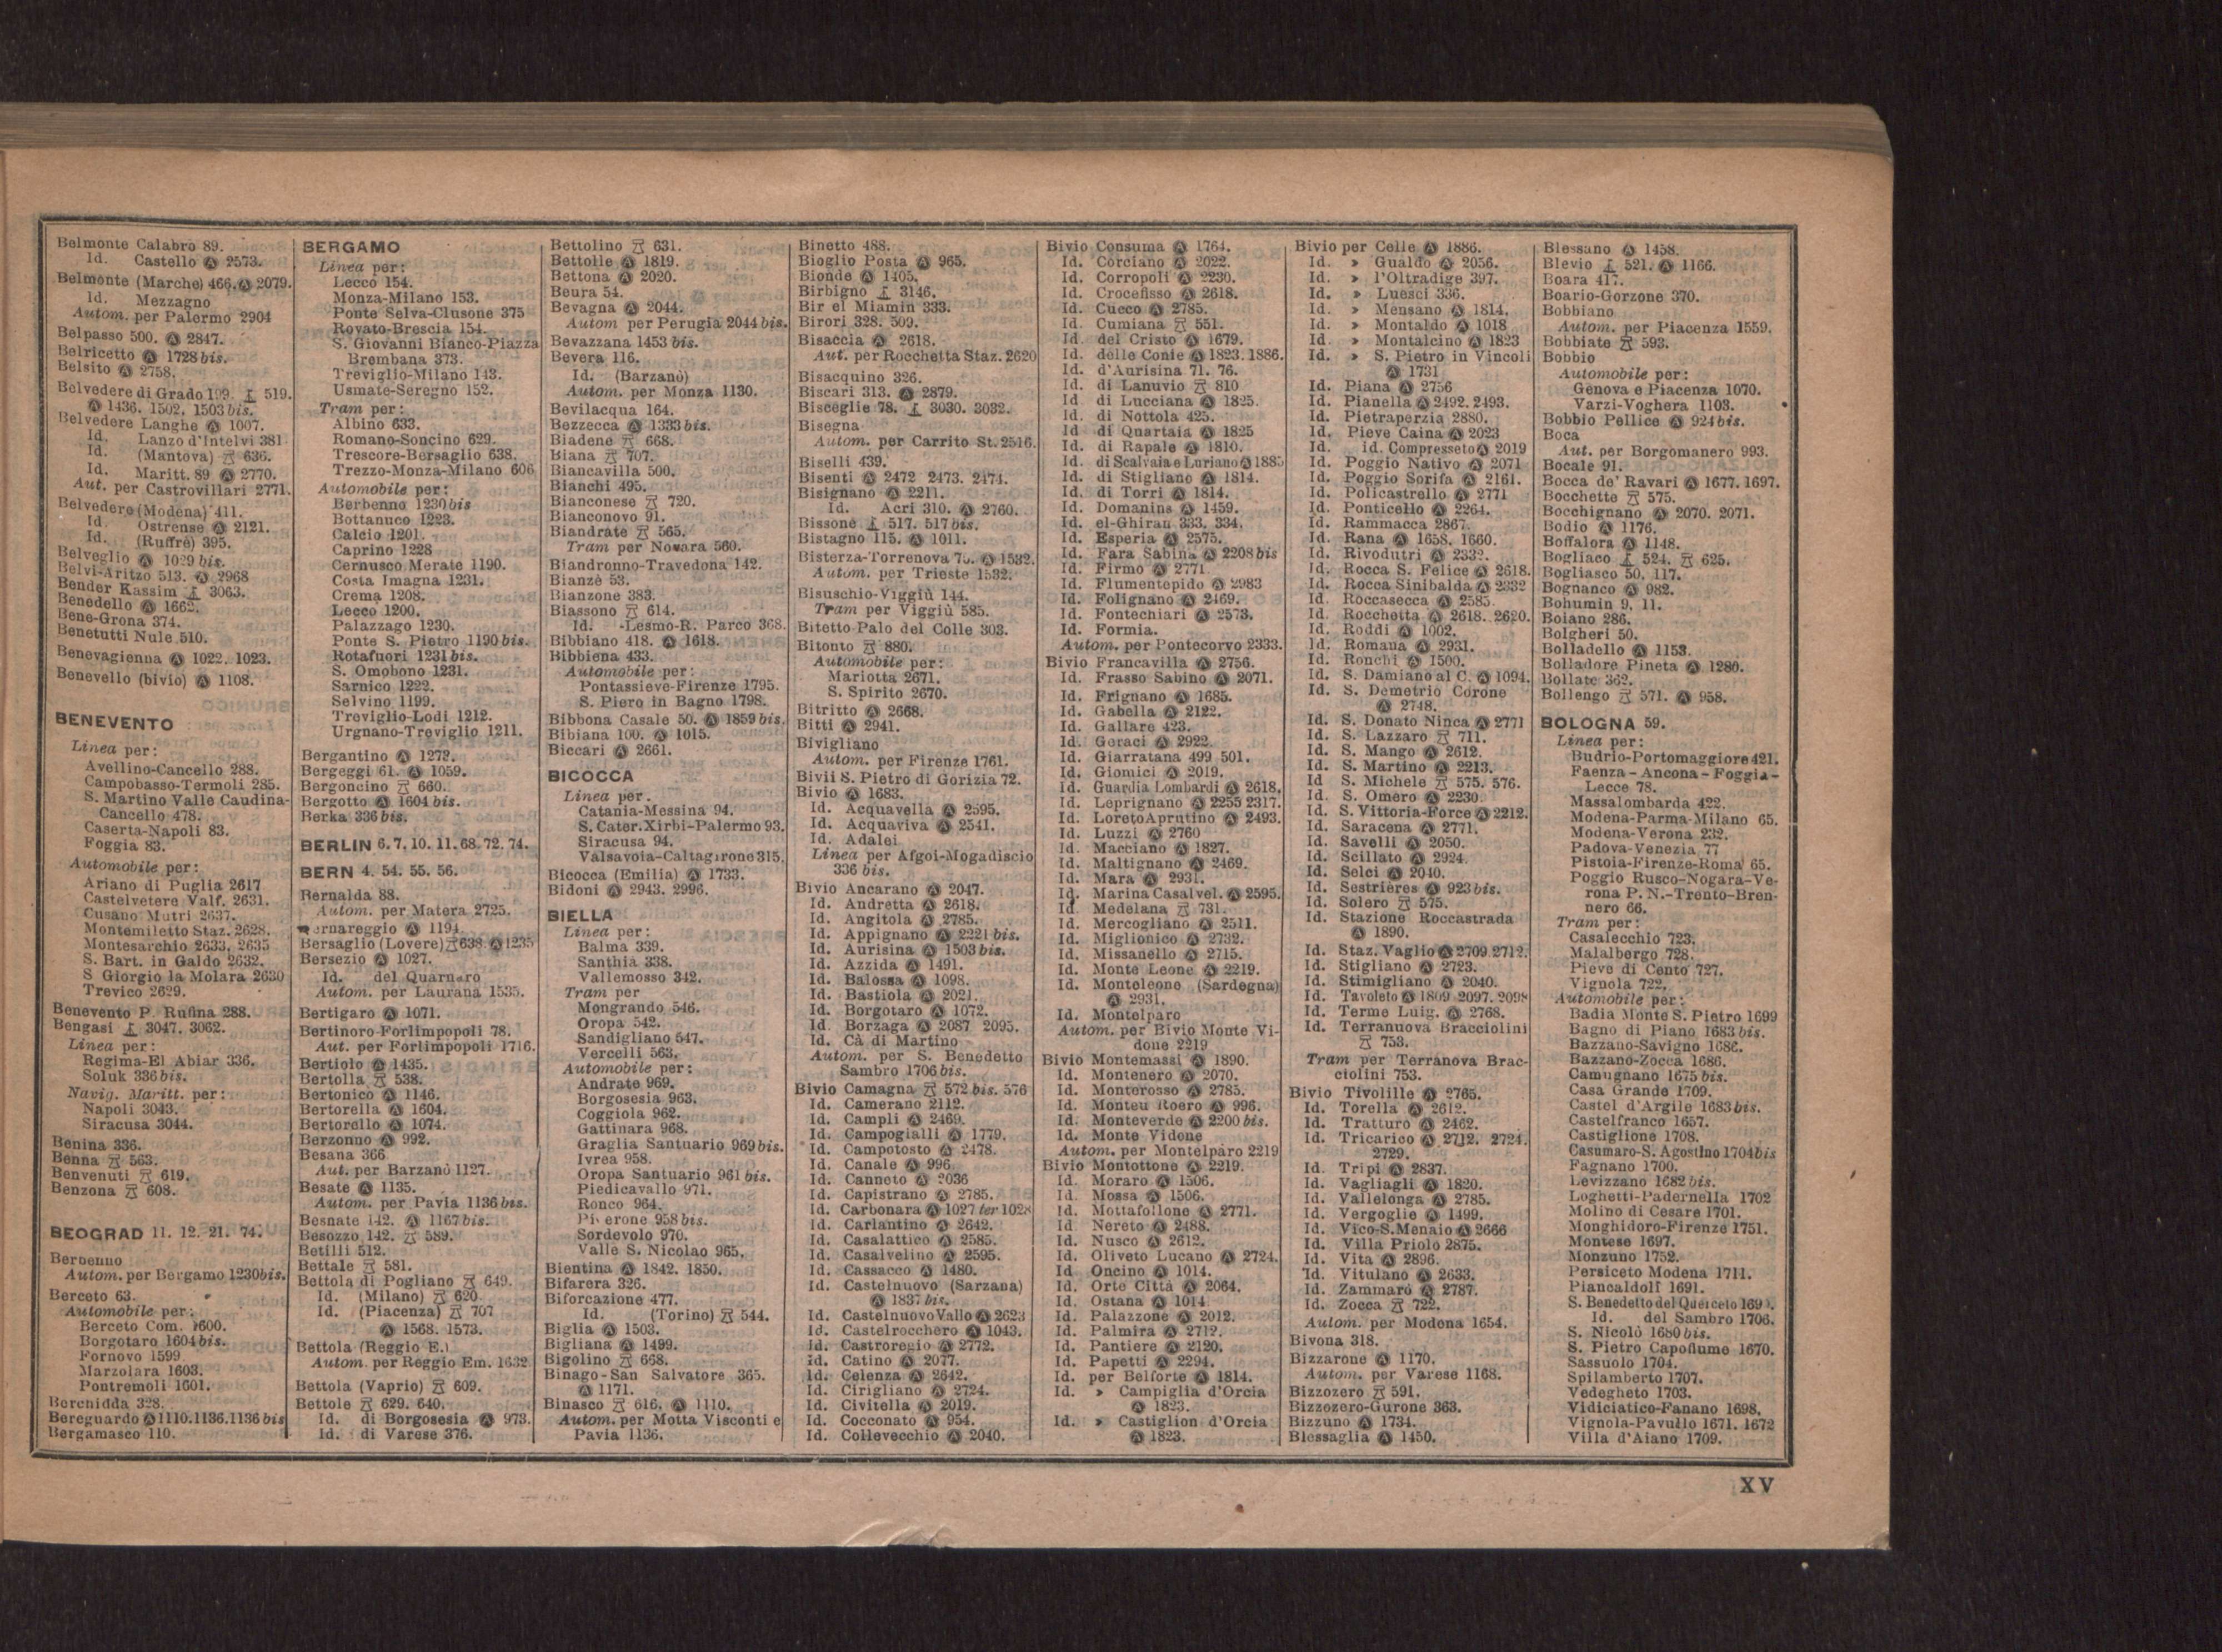 Belmonte Calabro 89.
Id. Castello Ⓐ 2573.
Belmonte (Marche) 466. Ⓐ 2079.
Id. Mezzagno
Autom. per Palermo 2904
Belpasso 500. Ⓐ 2847.
Belricetto Ⓐ 1728 bis.
Belsito Ⓐ 2758.
Belvedere di Grado 519.
Ⓐ 1436. 1502. 1503 bis.
Belvedere Langhe Ⓐ 1007.
Id. Lanzo d'Intelvi 381
Id. (Mantova) 636.
Id. Maritt. 89 Ⓐ 2770.
Aut. per Castrovillari 2771.
Belvedere (Modena) 411.
Id. Ostrense Ⓐ 2121.
Id. (Ruffré) 395.
Belveglio Ⓐ 1029 bis.
Belvi-Aritzo 513. Ⓐ 2968
Bender Kassim 3063.
Benedello Ⓐ 1662.
Bene-Grona 374.
Benetutti Nule 510.
Benevagienna Ⓐ 1022. 1023.
Benevello (bivio) Ⓐ 1108.
BENEVENTO
Linea per:
Avellino-Cancello 288.
Campobasso-Termoli 285.
S. Martino Valle Caudina-
Cancello 478.
Caserta-Napoli 83.
Foggia 83.
Automobile per:
Ariano di Puglia 2617
Castelvetere Valf. 2631.
Cusano Mutri 2637.
Montemiletto Staz. 2628.
Montesarchio 2633. 2635
S. Bart. in Galdo 2632.
S Giorgio la Molara 2630
Trevico 2629.
Benevento P. Rufina 288.
Bengasi 3047. 3062.
Linea per:
Regima-El Abiar 336.
Soluk 336 bis.
Navig. Maritt. per:
Napoli 3043.
Siracusa 3044.
Benina 336.
Benna 563.
Benvenuti 619.
Benzona 608.
BEOGRAD 11. 12. 21. 74.
Berbenno
Autom. per Bergamo 1230 bis.
Berceto 63.
Automobile per:
Berceto Com. 1600.
Borgotaro 1604 bis.
Fornovo 1599
Marzolara 1603.
Pontremoli 1601.
Berchidda 328.
Bereguardo Ⓐ 1110. 1136. 1136 bis
Bergamasco 110.
BERGAMO
Linea per:
Lecco 154.
Monza-Milano 153.
Ponte Selva-Clusone 375
Rovato-Brescia 154.
S. Giovanni Bianco-Piazza
Brembana 373.
Treviglio-Milano 143.
Usmate-Seregno 152.
Tram per:
Albino 633.
Romano-Soncino 629.
Trescore-Bersaglio 638.
Trezzo-Monza-Milano 606
Automobile per:
Berbenno 1230 bis
Bottanuco 1223.
Calcio 1201.
Caprino 1228
Cernusco Merate 1190.
Costa Imagna 1231.
Crema 1208.
Lecco 1200.
Palazzago 1230.
Ponte S. Pietro 1190 bis.
Rotafuori 1231 bis.
S. Omobono 1231.
Sarnico 1222.
Selvino 1199.
Treviglio-Lodi 1212.
Urgnano-Treviglio 1211.
Bergantino Ⓐ 1273.
Bergeggi 61. Ⓐ 1059.
Bergoncino 660.
Bergotto Ⓐ 1604 bis.
Berka 336 bis.
BERLIN 6. 7. 10. 11. 68. 72. 74.
BERN 4. 54. 55. 56.
Bernalda 88.
Autom. per Matera 2725.
ernareggio Ⓐ 1194
Bersaglio (Lovere) 638 Ⓐ 1235
Bersezio Ⓐ 1027.
Id. del Quarnaro
Autom. per Laurana 1535.
Bertigaro Ⓐ 1071.
Bertinoro-Forlimpopoli 78.
Aut. per Forlimpopoli 1716.
Bertiolo Ⓐ 1435.
Bertolla 538.
Bertonico Ⓐ 1146.
Bertorella Ⓐ 1604.
Bertorello Ⓐ 1074.
Berzonno Ⓐ 992.
Besana 366
Aut. per Barzanò 1127.
Besate Ⓐ 1135.
Autom. per Pavia 1136 bis.
Besnate 142. Ⓐ 1167 bis.
Besozzo 142. 589.
Betilli 512.
Bettale 581.
Bettola di Pogliano 649.
Id. (Milano) 620
Id. (Piacenza) 707
Ⓐ 1568. 1573.
Bettola (Reggio E.)
Autom. per Reggio Em. 1632
Bettola (Vaprio) 609.
Bettole 629. 640.
Id. di Borgosesia Ⓐ 973.
Id. di Varese 376.
Bettolino 631.
Bettolle Ⓐ 1819.
Bettona Ⓐ 2020.
Beura 54.
Bevagna Ⓐ 2044.
Autom per Perugia 2044 bis.
Bevazzana 1453 bis.
Bevera 116.
Id. (Barzanò)
Autom. per Monza 1130.
Bevilacqua 164.
Bezzecca Ⓐ 1333 bis.
Biadene 668.
Biana 707.
Biancavilla 500.
Bianchi 495.
Bianconese 720.
Bianconovo 91.
Biandrate 565.
Tram per Novara 560.
Biandronno-Travedona 142.
Bianzè 53.
Bianzone 383.
Biassono 614.
Id. -Lesmo-R. Parco 368.
Bibbiano 418. Ⓐ 1618.
Bibbiena 433.
Automobile per:
Pontassieve-Firenze 1795.
S. Piero in Bagno 1798.
Bibbona Casale 50. Ⓐ 1859 bis.
Bibiana 100. Ⓐ 1015.
Biccari Ⓐ 2661.
BICOCCA
Linea per.
Catania-Messina 94.
S. Cater. Xirbi-Palermo 93.
Siracusa 94.
Valsavoia-Caltagirone 315.
Bicocca (Emilia) Ⓐ 1733.
Bidoni Ⓐ 2943. 2996.
BIELLA
Linea per:
Balma 339.
Santhià 338.
Vallemosso 342.
Tram per
Mongrando 546.
Oropa 542.
Sandigliano 547.
Vercelli 563.
Automobile per:
Andrate 969.
Borgosesia 963.
Coggiola 962.
Gattinara 968.
Graglia Santuario 969 bis.
Ivrea 958.
Oropa Santuario 961 bis.
Piedicavallo 971.
Ronco 964.
Piverone 958 bis.
Sordevolo 970.
Valle S. Nicolao 965.
Bientina Ⓐ 1842. 1850.
Bifarera 326.
Biforcazione 477.
Id. (Torino) 544.
Biglia Ⓐ 1503.
Bigliana Ⓐ 1499.
Bigolino 668.
Binago-San Salvatore 365.
Ⓐ 1171.
Binasco 616. Ⓐ 1110.
Autom. per Motta Visconti e
Pavia 1136.
Binetto 488.
Bioglio Posta Ⓐ 965.
Bionde Ⓐ 1405.
Birbigno 3146.
Bir el Miamin 333.
Birori 328. 509.
Bisaccia Ⓐ 2618.
Aut. per Rocchetta Staz. 2620
Bisacquino 326.
Biscari 313. Ⓐ 2879.
Bisceglie 78. 3030. 3032.
Bisegna
Autom. per Carrito St. 2516.
Biselli 439.
Bisenti Ⓐ 2472 2473. 2474.
Bisignano Ⓐ 2211.
Id. Acri 310. Ⓐ 2760.
Bissone 517. 517 bis.
Bistagno 115. Ⓐ 1011.
Bisterza-Torrenova Ⓐ 1532.
Autom. per Trieste 1532.
Bisuschio-Viggiù 144.
Tram per Viggiù 585.
Bitetto-Palo del Colle 303.
Bitonto 880.
Automobile per:
Mariotta 2671.
S. Spirito 2670.
Bitritto Ⓐ 2668.
Bitti Ⓐ 2941.
Bivigliano
Autom. per Firenze 1761.
Bivii S. Pietro di Gorizia 72.
Bivio Ⓐ 1683.
Id. Acquavella Ⓐ 2595.
Id. Acquaviva Ⓐ 2541.
Id. Adalei
Linea per Afgoi-Mogadiscio
336 bis.
Bivio Ancarano Ⓐ 2047.
Id. Andretta Ⓐ 2618.
Id. Angitola Ⓐ 2785.
Id. Appignano Ⓐ 2221 bis.
Id. Aurisina Ⓐ 1503 bis.
Id. Azzida Ⓐ 1491.
Id. Balossa Ⓐ 1098.
Id. Bastiola Ⓐ 2021.
Id. Borgotaro Ⓐ 1072.
Id. Borzaga Ⓐ 2087 2095.
Id. Cà di Martino
Autom. per S. Benedetto
Sambro 1706 bis.
Bivio Camagna 572 bis. 576
Id. Camerano 2112.
Id. Campli Ⓐ 2469.
Id. Campogialli Ⓐ 1779.
Id. Campotosto Ⓐ 2478.
Id. Canale Ⓐ 996
Id. Canneto Ⓐ 2036
Id. Capistrano Ⓐ 2785.
Id. Carbonara Ⓐ 1027 ter 1028
Id. Carlantino Ⓐ 2642.
Id. Casalattico Ⓐ 2585.
Id. Casalvelino Ⓐ 2595.
Id. Cassacco Ⓐ 1480.
Id. Castelnuovo (Sarzana)
Ⓐ 1837 bis.
Id. Castelnuovo Vallo Ⓐ 2623
Id. Castelrocchero Ⓐ 1043.
Id. Castroregio Ⓐ 2772.
Id. Catino Ⓐ 2077.
Id. Celenza Ⓐ 2642.
Id. Cirigliano Ⓐ 2724.
Id. Civitella Ⓐ 2019.
Id. Cocconato Ⓐ 954.
Id. Collevecchio Ⓐ 2040.
Bivio Consuma Ⓐ 1764.
Id. Corciano Ⓐ 2022.
Id. Corropoli Ⓐ 2230.
Id. Crocefisso Ⓐ 2618.
Id. Cucco Ⓐ 2785.
Id. Cumiana 551.
Id. del Cristo Ⓐ 1679.
Id. delle Conie Ⓐ 1823. 1886.
Id. d'Aurisina 71. 76.
Id. di Lanuvio 810
Id di Lucciana Ⓐ 1825.
Id. di Nottola 425.
Id di Quartaia Ⓐ 1825
Id. di Rapale Ⓐ 1810.
Id. di Scalvaia e Luriano Ⓐ 1885
Id. di Stigliano Ⓐ 1814.
Id. di Torri Ⓐ 1814.
Id. Domanins Ⓐ 1459.
Id. el-Ghiran 333. 334.
Id. Esperia Ⓐ 2575.
Id. Fara Sabina Ⓐ 2208 bis
Id. Firmo Ⓐ 2771.
Id. Flumentepido Ⓐ 2983
Id. Folignano Ⓐ 2469.
Id. Fontechiari Ⓐ 2573.
Id. Formia.
Autom. per Pontecorvo 2333.
Bivio Francavilla Ⓐ 2756.
Id. Frasso Sabino Ⓐ 2071.
Id. Frignano Ⓐ 1685.
Id. Gabella Ⓐ 2122.
Id. Gallare 423.
Id. Geraci Ⓐ 2922.
Id. Giarratana 499 501.
Id. Giomici Ⓐ 2019.
Id. Guardia Lombardi Ⓐ 2618.
Id. Leprignano Ⓐ 2255 2317.
Id. Loreto Aprutino Ⓐ 2493.
Id. Luzzi Ⓐ 2760
Id. Macciano Ⓐ 1827.
Id. Maltignano Ⓐ 2469.
Id. Mara Ⓐ 2931.
Id. Marina Casalvel. Ⓐ 2595.
Id. Medelana 731.
Id. Mercogliano Ⓐ 2511.
Id. Miglionico Ⓐ 2732.
Id. Missanello Ⓐ 2715.
Id. Monte Leone Ⓐ 2219.
Id. Monteleone (Sardegna)
Ⓐ 2931.
Id. Montelparo
Autom. per Bivio Monte Vi-
done 2219
Bivio Montemassi Ⓐ 1890.
Id. Montenero Ⓐ 2070.
Id. Monterosso Ⓐ 2785.
Id. Monteu Roero Ⓐ 996.
Id. Monteverde Ⓐ 2200 bis.
Id. Monte Vidone
Autom. per Montelparo 2219
Bivio Montottone Ⓐ 2219.
Id. Moraro Ⓐ 1506.
Id. Mossa Ⓐ 1506.
Id. Mottafollone Ⓐ 2771.
Id Nereto Ⓐ 2488.
Id. Nusco Ⓐ 2612.
Id. Oliveto Lucano Ⓐ 2724.
Id. Oncino Ⓐ 1014.
Id. Orte Città Ⓐ 2064.
Id. Ostana Ⓐ 1014
Id. Palazzone Ⓐ 2012.
Id. Palmira Ⓐ 2712.
Id. Pantiere Ⓐ 2120.
Id. Papetti Ⓐ 2294.
Id. per Belforte Ⓐ 1814.
Id. » Campiglia d'Orcia
Ⓐ 1823.
Id. » Castiglion d'Orcia
Ⓐ 1823.
Bivio per Celle Ⓐ 1886.
Id. » Gualdo Ⓐ 2056.
Id. » l'Oltradige 397.
Id. » Luesci 336.
Id. » Mensano Ⓐ 1814.
Id. » Montaldo Ⓐ 1018
Id. » Montalcino Ⓐ 1823
Id. » S. Pietro in Vincoli
Ⓐ 1731
Id. Piana Ⓐ 2756
Id. Pianella Ⓐ 2492. 2493.
Id. Pietraperzia 2880.
Id. Pieve Caina Ⓐ 2023
Id. id. Compresseto Ⓐ 2019
Id. Poggio Nativo Ⓐ 2071
Id. Poggio Sorifa Ⓐ 2161.
Id. Policastrello Ⓐ 2771
Id. Ponticello Ⓐ 2264.
Id. Rammacca 2867.
Id. Rana Ⓐ 1658. 1660.
Id. Rivodutri Ⓐ 2332.
Id. Rocca S. Felice Ⓐ 2618.
Id. Rocca Sinibalda Ⓐ 2332
Id. Roccasecca Ⓐ 2585.
Id. Rocchetta Ⓐ 2618. 2620.
Id. Roddi Ⓐ 1002.
Id. Romana Ⓐ 2931.
Id. Ronchi Ⓐ 1500.
Id. S. Damiano al C. Ⓐ 1094.
Id. S. Demetrio Corone
Ⓐ 2748.
Id. S. Donato Ninca Ⓐ 2771
Id. S. Lazzaro 711.
Id. S. Mango Ⓐ 2612.
Id. S. Martino Ⓐ 2213.
Id S. Michele 575. 576.
Id. S. Omero Ⓐ 2230.
Id. S. Vittoria-Force Ⓐ 2212.
Id. Saracena Ⓐ 2771.
Id. Savelli Ⓐ 2050.
Id. Scillato Ⓐ 2924.
Id. Selci Ⓐ 2040.
Id. Sestrières Ⓐ 923 bis.
Id. Solero 575.
Id. Stazione Roccastrada
Ⓐ 1890.
Id. Staz. Vaglio Ⓐ 2709. 2712.
Id. Stigliano Ⓐ 2723.
Id. Stimigliano Ⓐ 2040.
Id. Tavoleto Ⓐ 1809 2097. 2098
Id. Terme Luig. Ⓐ 2768.
Id. Terranuova Bracciolini
753.
Tram per Terranova Brac-
ciolini 753.
Bivio Tivolille Ⓐ 2765.
Id. Torella Ⓐ 2612.
Id. Tratturo Ⓐ 2462.
Id. Tricarico Ⓐ 2712. 2724.
2729.
Id. Tripi Ⓐ 2837.
Id. Vagliagli Ⓐ 1820.
Id. Vallelonga Ⓐ 2785.
Id. Vergoglie Ⓐ 1499.
Id. Vico-S. Menaio Ⓐ 2666
Id. Villa Priolo 2875.
Id. Vita Ⓐ 2896.
Id. Vitulano Ⓐ 2633.
Id. Zammarò Ⓐ 2787.
Id. Zocca 722.
Autom. per Modena 1654.
Bivona 318.
Bizzarone Ⓐ 1170.
Autom. per Varese 1168.
Bizzozero 591.
Bizzozero-Gurone 363.
Bizzuno Ⓐ 1734.
Blessaglia Ⓐ 1450.
Blessano Ⓐ 1458.
Blevio 521. Ⓐ 1166.
Boara 417.
Boario-Gorzone 370.
Bobbiano
Autom. per Piacenza 1559.
Bobbiate 593.
Bobbio
Automobile per:
Genova e Piacenza 1070.
Varzi-Voghera 1103.
Bobbio Pellice Ⓐ 924 bis.
Boca
Aut. per Borgomanero 993.
Bocale 91.
Bocca de' Ravari Ⓐ 1677. 1697.
Bocchette 575.
Bocchignano Ⓐ 2070. 2071.
Bodio Ⓐ 1176.
Boffalora Ⓐ 1148.
Bogliaco 524. 625.
Bogliasco 50. 117.
Bognanco Ⓐ 982.
Bohumin 9. 11.
Boiano 286.
Bolgheri 50.
Bolladello Ⓐ 1153.
Bolladore Pineta Ⓐ 1280.
Bollate 362.
Bollengo 571. Ⓐ 958.
BOLOGNA 59.
Linea per:
Budrio-Portomaggiore 421.
Faenza-Ancona-Foggia-
Lecce 78.
Massalombarda 422.
Modena-Parma-Milano 65.
Modena-Verona 232.
Padova-Venezia 77
Pistoia-Firenze-Roma 65.
Poggio Rusco-Nogara-Ve-
rona P. N.-Trento-Bren-
nero 66.
Tram per:
Casalecchio 723.
Malalbergo 728.
Pieve di Cento 727.
Vignola 722.
Automobile per:
Badia Monte S. Pietro 1699
Bagno di Piano 1683 bis.
Bazzano-Savigno 1686.
Bazzano-Zocca 1686.
Camugnano 1675 bis.
Casa Grande 1709.
Castel d'Argile 1683 bis.
Castelfranco 1657.
Castiglione 1708.
Casumaro-S. Agostino 1704 bis
Fagnano 1700.
Levizzano 1682 bis.
Loghetti-Padernella 1702
Molino di Cesare 1701.
Monghidoro-Firenze 1751.
Montese 1697.
Monzuno 1752.
Persiceto Modena 1711.
Piancaldoli 1691.
S. Benedetto del Querceto
Id. del Sambro 1706.
S. Nicolò 1680 bis.
S. Pietro Capofiume 1670.
Sassuolo 1704.
Spilamberto 1707.
Vedegheto 1703.
Vidiciatico-Fanano 1698.
Vignola-Pavullo 1671. 1672
Villa d'Aiano 1709.
XV